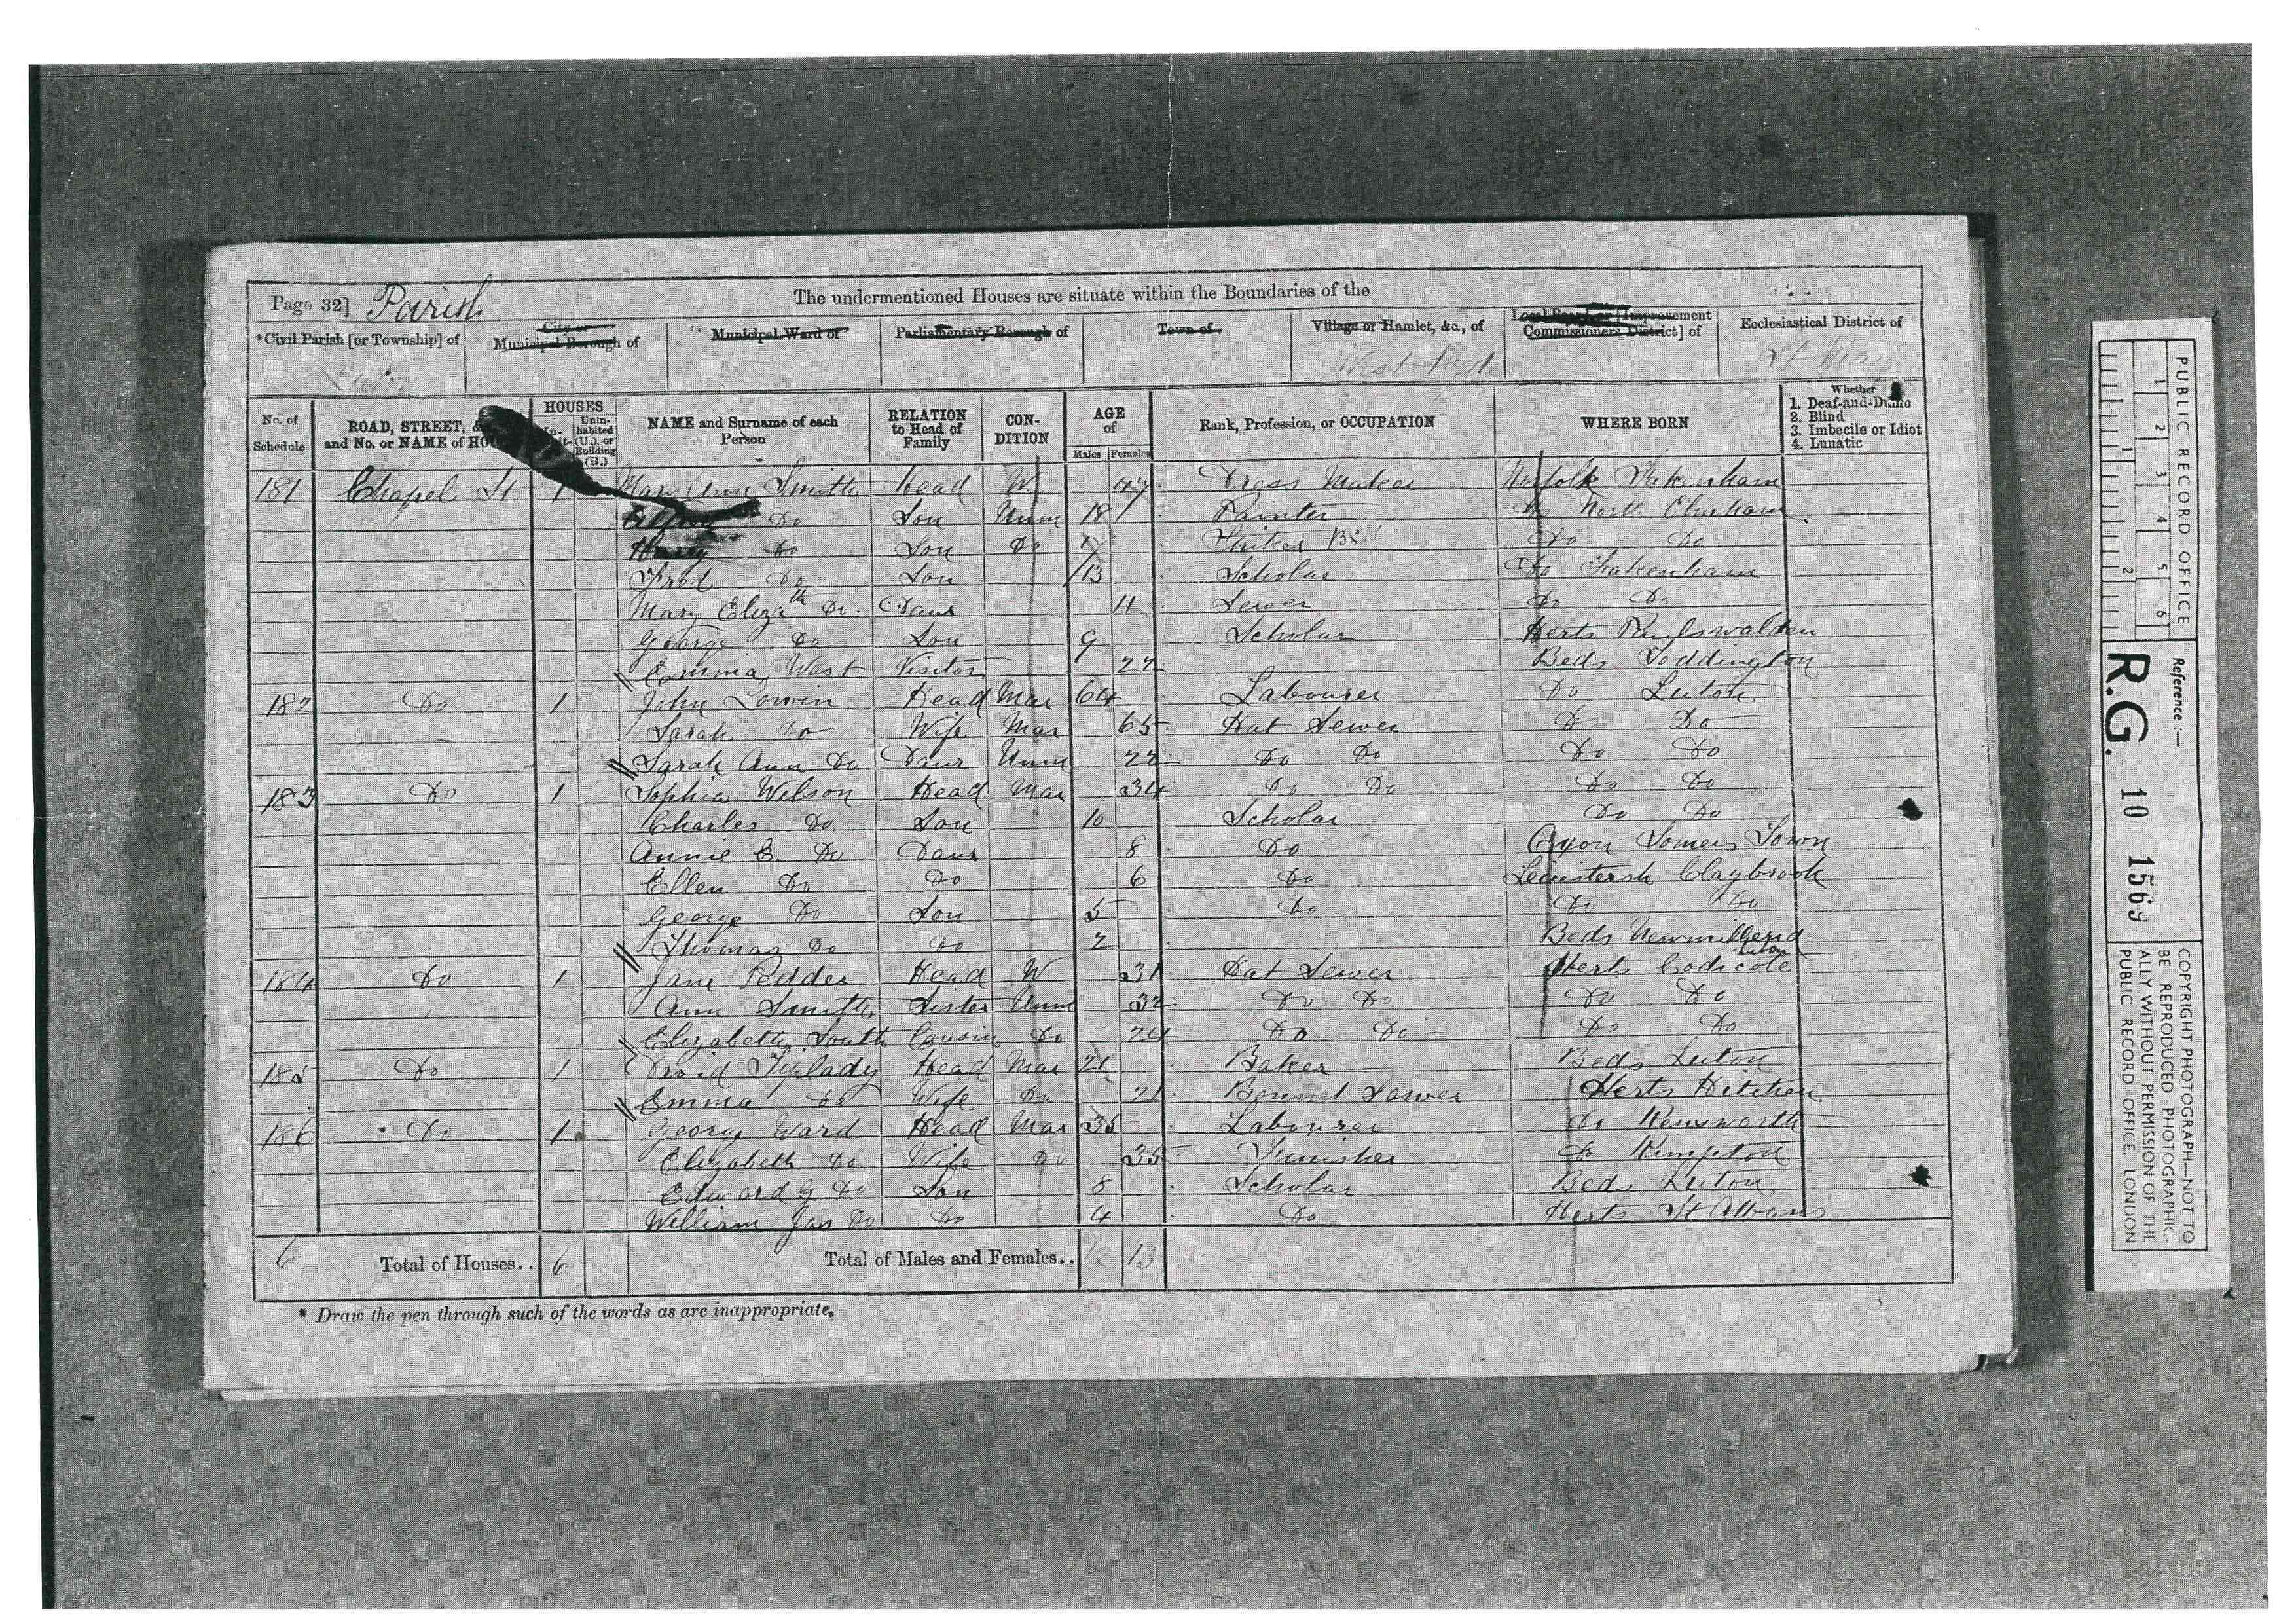 Page 32] Parish
The undermentioned Houses are situate within the Boundaries of the
*Civil Parish [or Township] of City or Municipal Borough of Municipal Ward of Parliamentary Borough of Town of Village or Hamlet, &c., of Local Board, or [Improvement Commissioners District] of Ecclesiastical District of
Luton West Hyde St Mary
No. of Schedule ROAD, STREET, and No. or NAME of HOUSES Uninhabited (U.), or Building (B.) NAME and Surname of each Person RELATION to Head of Family CONDITION AGE of Males Females Rank, Profession, or OCCUPATION WHERE BORN Whether 1. Deaf-and-Dumb 2. Blind 3. Imbecile or Idiot 4. Lunatic
181 Chapel St 1 Mary Ann Smith Head W 47 Dress Maker Norfolk Fakenham
Do Son Unm 18 Painter Do North Elmham
Harry Do Son Do 17 Striker Do Do
Fred Do Son 13 Scholar Do Fakenham
Mary Elizth Do Daur 11 Sewer Do Do
George Do Son 9 Scholar Herts Paulswalden
Emma West Visitor 22 Beds Toddington
182 Do 1 John Lowin Head Mar 64 Labourer Do Luton
Sarah Do Wife Mar 65 Hat Sewer Do Do
Sarah Ann Do Daur Unm 22 Do Do Do Do
183 Do 1 Sophia Wilson Head Mar 34 Do Do Do Do
Charles Do Son 10 Scholar Do Do
Annie E. Do Daur 8 Do Oxon Somers Town
Ellen Do Do 6 Do Leicstersh Claybrook
George Do Son 5 Do Do Do
Thomas Do Do 2 Beds Newmillend Luton
184 Do 1 Jane Pedder Head W 31 Hat Sewer Herts Codicote
Ann Smith Sister Unm 32 Do Do Do Do
Elizabeth South Cousin Do 24 Do Do Do Do
185 Do 1 David Tiplady Head Mar 21 Baker Beds Luton
Emma Do Wife Do 21 Bonnet Sewer Herts Hitchin
186 Do 1 George Ward Head Mar 35 Labourer Do Kensworth
Elizabeth Do Wife Do 35 Finisher Do Kimpton
Edward G Do Son 8 Scholar Beds Luton
William Jas Do Do 4 Do Herts St Albans
6 Total of Houses.. 6 Total of Males and Females.. 12 13
* Draw the pen through such of the words as are inappropriate.
PUBLIC RECORD OFFICE
1 2 3 4 5 6
1 2
Reference :—
R.G. 10 1569
COPYRIGHT PHOTOGRAPH—NOT TO
BE REPRODUCED PHOTOGRAPHIC-
ALLY WITHOUT PERMISSION OF THE
PUBLIC RECORD OFFICE, LONDON